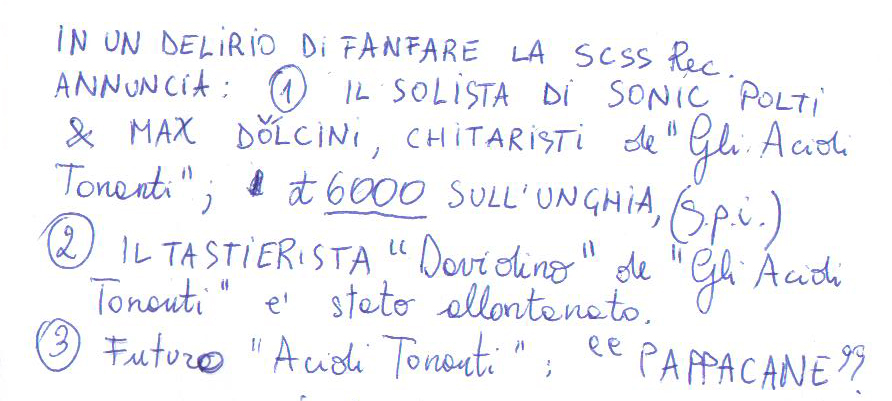 IN UN DELIRIO DI FANFARE LA SCSS Rec.
ANNUNCIA: ① IL SOLISTA DI SONIC POLTI
& MAX DOLCINI, CHITARISTI de "Gli Acidi
Tonanti"; £ 6000 SULL'UNGHIA, (S.p.i.)
② IL TASTIERISTA "Davidino" de "Gli Acidi
Tonanti" e' stato allontanato.
③ Futuro "Acidi Tonanti"; "PAPPACANE"?